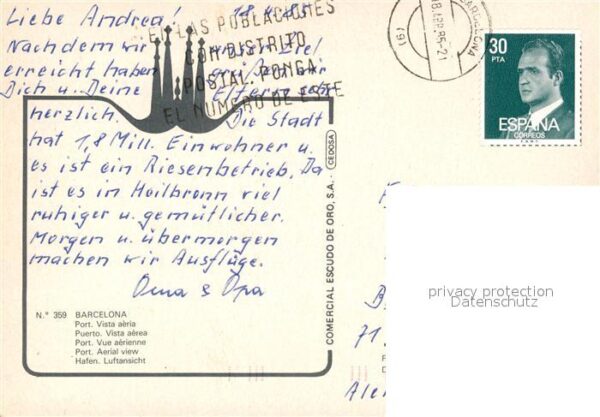 Liebe Andrea! 18.4.85
Nachdem wir unser Ziel
erreicht haben grüßen wir
Dich u. Deine Eltern sehr
herzlich. Die Stadt
hat 1,8 Mill. Einwohner u.
es ist ein Riesenbetrieb. Da
ist es in Heilbronn viel
ruhiger u. gemütlicher.
Morgen u. übermorgen
machen wir Ausflüge.
Oma & Opa
EN LAS POBLACIONES
CON DISTRITO
POSTAL, PONGA
EL NUMERO DE ESTE
N.° 359 BARCELONA
Port. Vista aèria
Puerto. Vista aérea
Port. Vue aérienne
Port. Aerial view
Hafen. Luftansicht
COMERCIAL ESCUDO DE ORO, S.A.
CEDOSA
(6)
18 ABR. 85-21
BARCELONA
30
PTA
ESPAÑA
CORREOS
71
privacy protection
Datenschutz